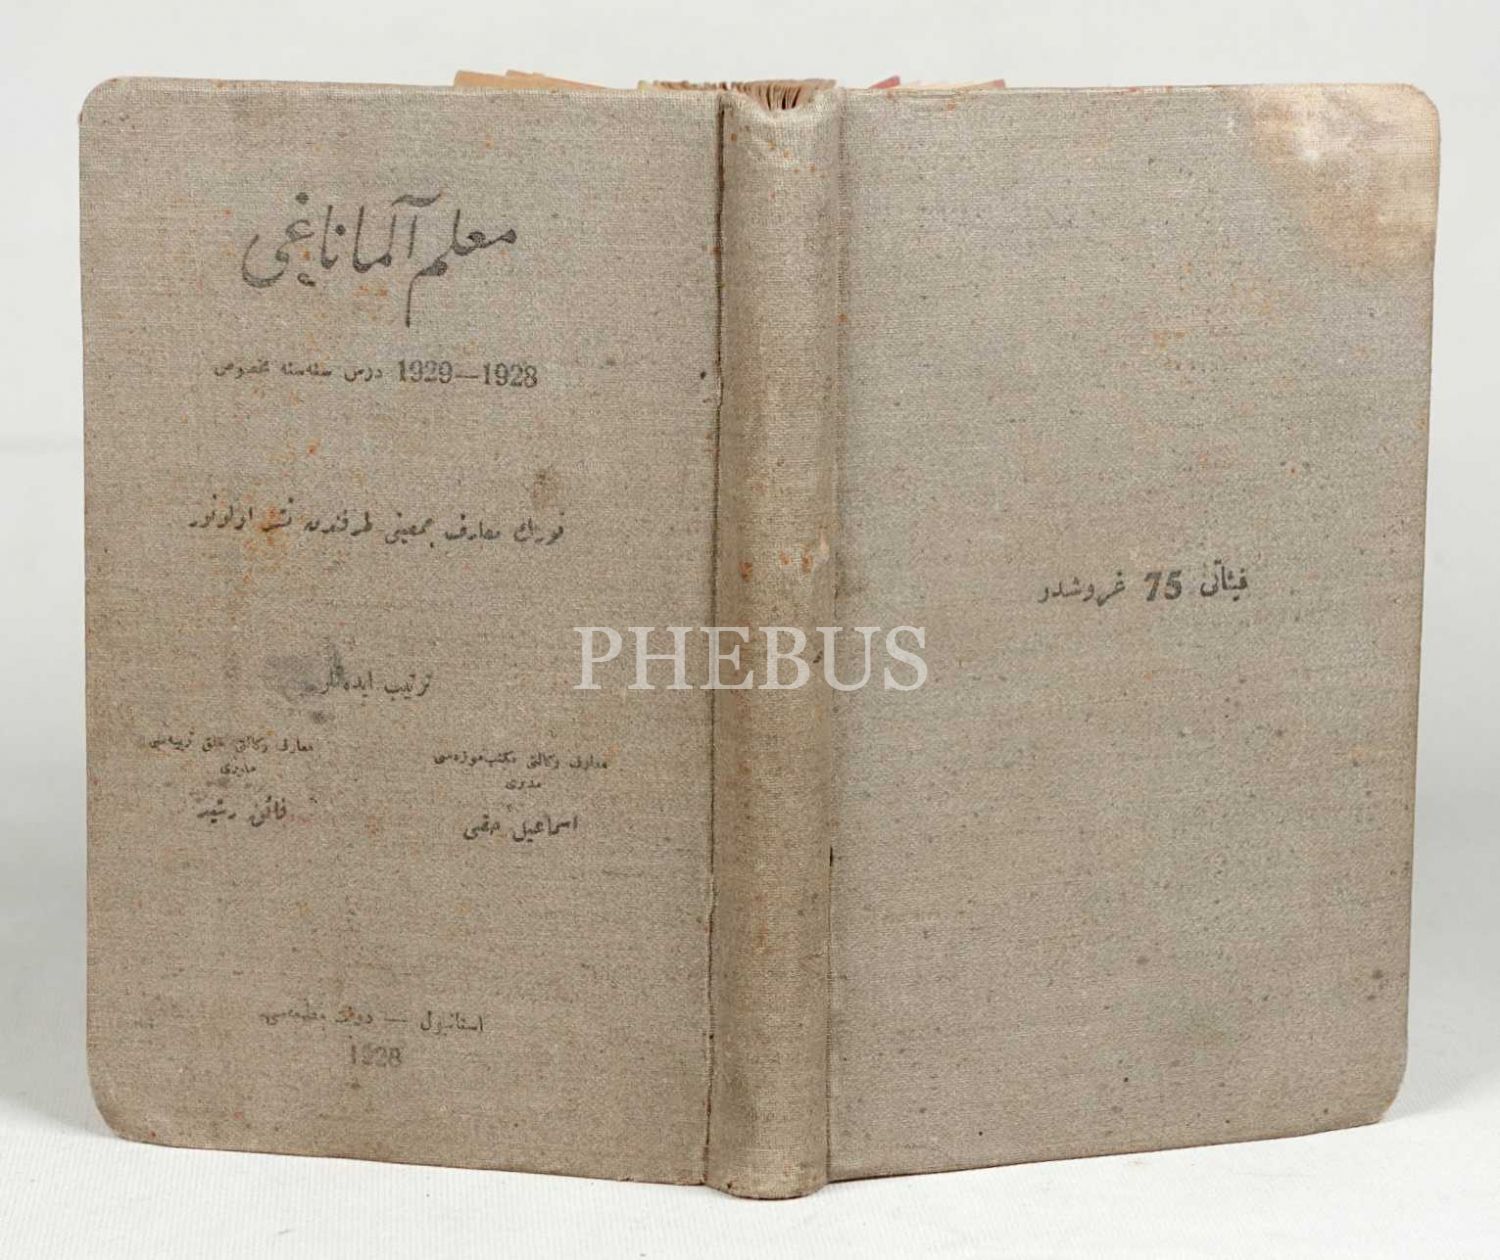 معلم آلماناغی
1928—1929 درس سنه‌سنه مخصوص
تورك معارف جمعیتی طرفندن نشر اولونور
ترتیب ایده‌نلر
معارف وكالتی مكتب موزه‌سی
مدیری
اسماعیل حقی
معارف وكالتی خلق تربیه‌سی
مدیری
فائق رشید
استانبول — دولت مطبعه‌سی
1928
فیئاتی 75 غروشدر
PHEBUS